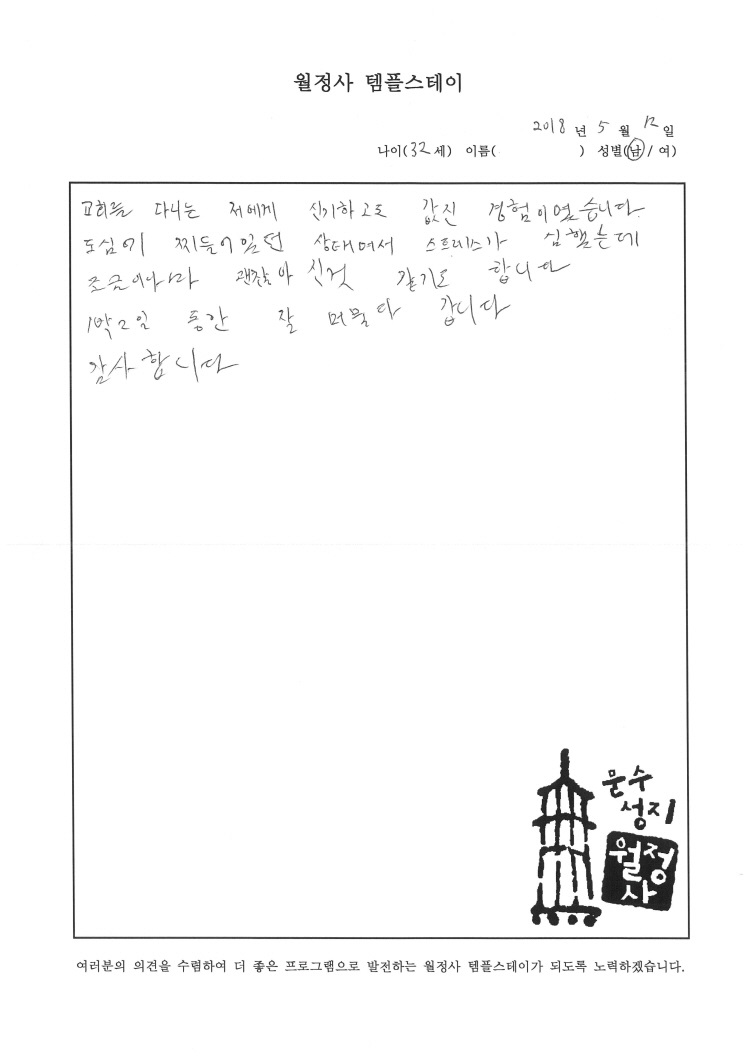 월정사 템플스테이
2018 년 5 월 12 일
나이(32세) 이름( ) 성별(남/ 여)
교회를 다니는 저에게 신기하고도 값진 경험이였습니다
도심에 찌들어있던 상태여서 스트레스가 심했는데
조금이나마 괜찮아 진것 같기도 합니다
1박2일 동안 잘 머물다 갑니다
감사합니다
문수
성지
월정
사
여러분의 의견을 수렴하여 더 좋은 프로그램으로 발전하는 월정사 템플스테이가 되도록 노력하겠습니다.